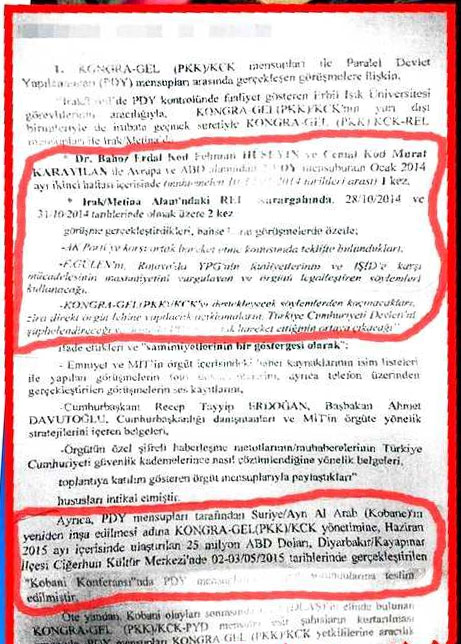 1. KONGRA-GEL (PKK)/KCK mensupları ile Paralel Devlet
Yapılanması (PDY) mensupları arasında gerçekleşen görüşmelere ilişkin,
PDY kontrolünde faaliyet gösteren Erbil Işık Üniversitesi
görevlilerinin aracılığıyla, KONGRA-GEL(PKK)/KCK'nın yurt dışı
birimleriyle de irtibata geçmek suretiyle KONGRA-GEL (PKK)/KCK-REL
mensupları ile Irak/Metina
* Dr. Bahoz Erdal Kod Fehman HÜSEYİN ve Cemal Kod Murat
KARAYILAN ile Avrupa ve ABD alanından PDY mensubunun Ocak 2014
ayı ikinci haftası içerisinde tarihleri arası 1 kez,
* Irak/Metina Alanı'ndaki REL karargahında, 28/10/2014 ve
31-10-2014 tarihlerinde olmak üzere 2 kez
görüşme gerçekleştirdikleri, bahse görüşmelerde özetle;
-AK Parti'ye karşı ortak hareket etme konusunda teklifte bulundukları,
-F.GÜLEN'in, Rojava'da YPG'nin faaliyetlerinin ve IŞİD'e karşı
mücadelesinin masumiyetini vurgulayan ve örgütü legalleştiren söylemleri
kullanacağı,
-KONGRA-GEL(PKK)/KCK'yı destekleyecek söylemlerden kaçınacakları,
zira direkt örgüt lehine yapılacak açıklamaların, Türkiye Cumhuriyeti Devleti'ni
şüphelendireceği hareket ettiğinin ortaya çıkacağı"
ifade ettikleri ve "samimiyetlerinin bir göstergesi olarak";
- Emniyet ve MİT'in örgüt içerisindeki haber kaynaklarının isim listeleri
ile yapılan görüşmelerin ayrıca telefon üzerinden
gerçekleştirilen görüşmelerin ses kayıtlarını,
-Cumhurbaşkanı Recep Tayyip ERDOĞAN, Başbakan Ahmet
DAVUTOĞLU, Cumhurbaşkanlığı danışmanları ve MİT'in örgüte yönelik
stratejilerini içeren belgeleri,
-Örgütün özel şifreli haberleşme metotlarının/muhaberelerinin Türkiye
Cumhuriyeti güvenlik kademelerince nasıl çözümlendiğine yönelik belgeleri,
toplantıya katılım gösteren örgüt mensuplarıyla paylaştıkları"
hususları intikal etmiştir.
Ayrıca, PDY mensupları tarafından Suriye/Ayn Al Arab (Kobane)'ın
yeniden inşa edilmesi adına KONGRA-GEL(PKK)/KCK yönetimine, Haziran
2015 ayı içerisinde ulaştırılan 25 milyon ABD Doları, Diyarbakır/Kayapınar
İlçesi Cigerhun Kültür Merkezi'nde 02-03/05/2015 tarihlerinde gerçekleştirilen
"Kobani Konferansı"nda PDY teslim
edilmiştir.
Öte yandan, Kobani olayları sonrasında elinde bulunan
KONGRA-GEL (PKK)/KCK-PYD mensubu şahısların kurtarılması
PDY mensupları KONGRA GEL (PKK)/KCK yetkililerine aracılık